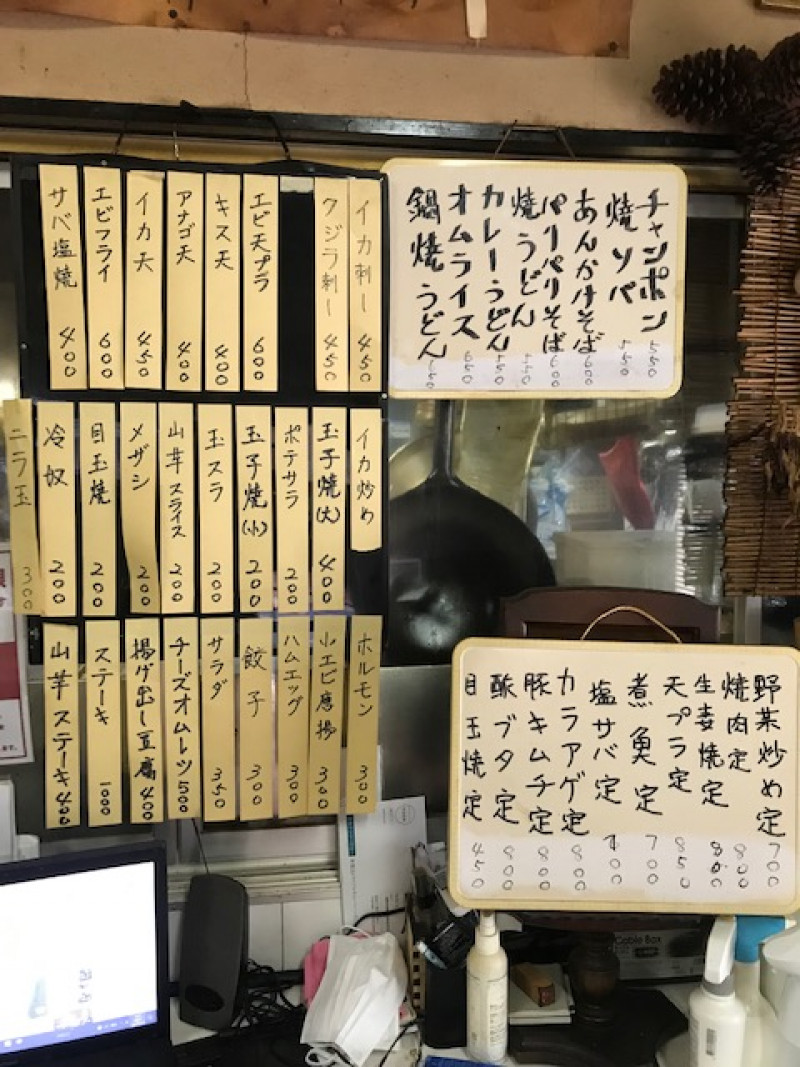 イカ刺し 450
クジラ刺し 450
エビ天プラ 600
キス天 400
アナゴ天 400
イカ天 450
エビフライ 600
サバ塩焼 400
チャンポン 550
焼ソバ 550
あんかけそば 600
パリパリそば 600
焼うどん 550
カレーうどん 550
オムライス 650
鍋焼うどん
イカ炒め
玉子焼(大) 400
ポテサラ 200
玉子焼(小) 200
玉スラ 200
山芋スライス 200
メザシ 200
目玉焼 200
冷奴 200
ニラ玉 300
ホルモン 300
小エビ唐揚 300
ハムエッグ 300
餃子 300
サラダ 350
チーズオムレツ 500
揚げ出し豆腐 400
ステーキ 1000
山芋ステーキ 400
野菜炒め定 700
焼肉定 800
生姜焼定 800
天プラ定 850
煮魚定 700
塩サバ定
カラアゲ定 800
豚キムチ定 800
酢ブタ定 800
目玉焼定 450
Cable Box